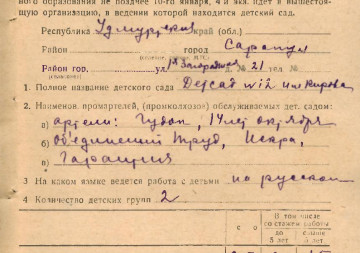 ного образования не позднее 10-го января, 4-й экз. идет в вышестоя-
щую организацию, в ведении которой находится детский сад.
Республика Удмуртская край (обл.)
Район город Сарапул
Район гор. ул. д. № 21 тел №
1. Полное название детского сада Детсад №12 им Кирова
2. Наименов. промартелей, (промколхозов) обслуживаемых дет. садом:
а) артели: Гудок, 14 лет октября
б) объединений Труд, Искра,
в) Гарантия
3 На каком языке ведется работа с детьми по русском
4 Количество детских групп 2
В том числе
со стажем работы
до 5 лет